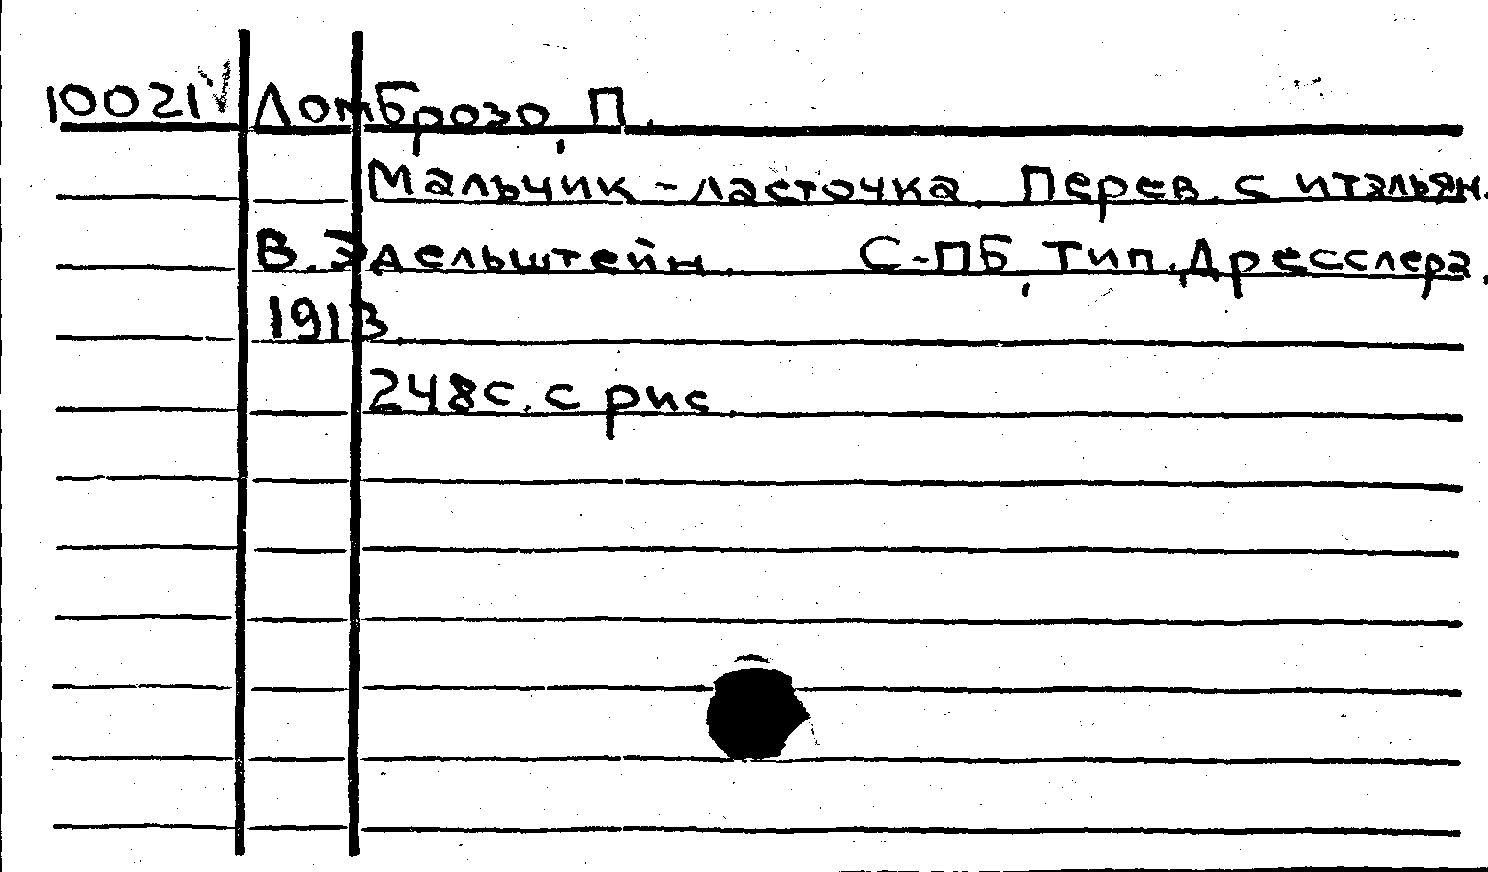 10021 V Ломброзо, П.
Мальчик-ласточка. Перев. с итальян.
В. Эдельштейн. С-ПБ, Тип. Дресслера,
1913.
248с. с рис.